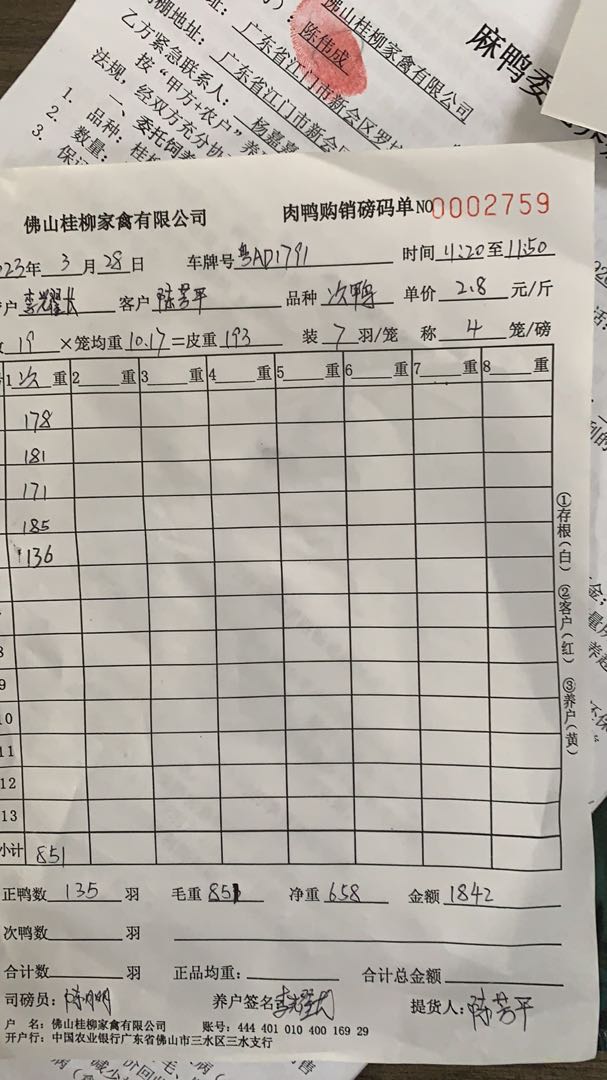 佛山桂柳家禽有限公司
陈伟成
麻鸭委
广东省江门市新会区罗坑
乙方紧急联系人: 杨嘉嘉
按“甲方+农户”养
法规，经双方充分协
一、委托饲养
1. 品种: 桂柳
2. 数量:
3. 保证
佛山桂柳家禽有限公司 肉鸭购销磅码单 NO0002759
023年 3 月 28 日 车牌号 粤AD1791 时间 4:20 至 11:50
户 李耀长 客户 陈芳平 品种 次鸭 单价 2.8 元/斤
19 ×笼均重 10.17 =皮重 193 装 7 羽/笼 称 4 笼/磅
1 次 重 2 重 3 重 4 重 5 重 6 重 7 重 8 重
178
181
171
185
136
8
9
10
11
12
13
小计 851
①存根(白) ②客户(红) ③养户(黄)
正鸭数 135 羽 毛重 851 净重 658 金额 1842
次鸭数 羽
合计数 羽 正品均重: 合计总金额
司磅员: 养户签名 李耀长 提货人: 陈芳平
户 名: 佛山桂柳家禽有限公司 账号: 444 401 010 400 169 29
开户行: 中国农业银行广东省佛山市三水区三水支行